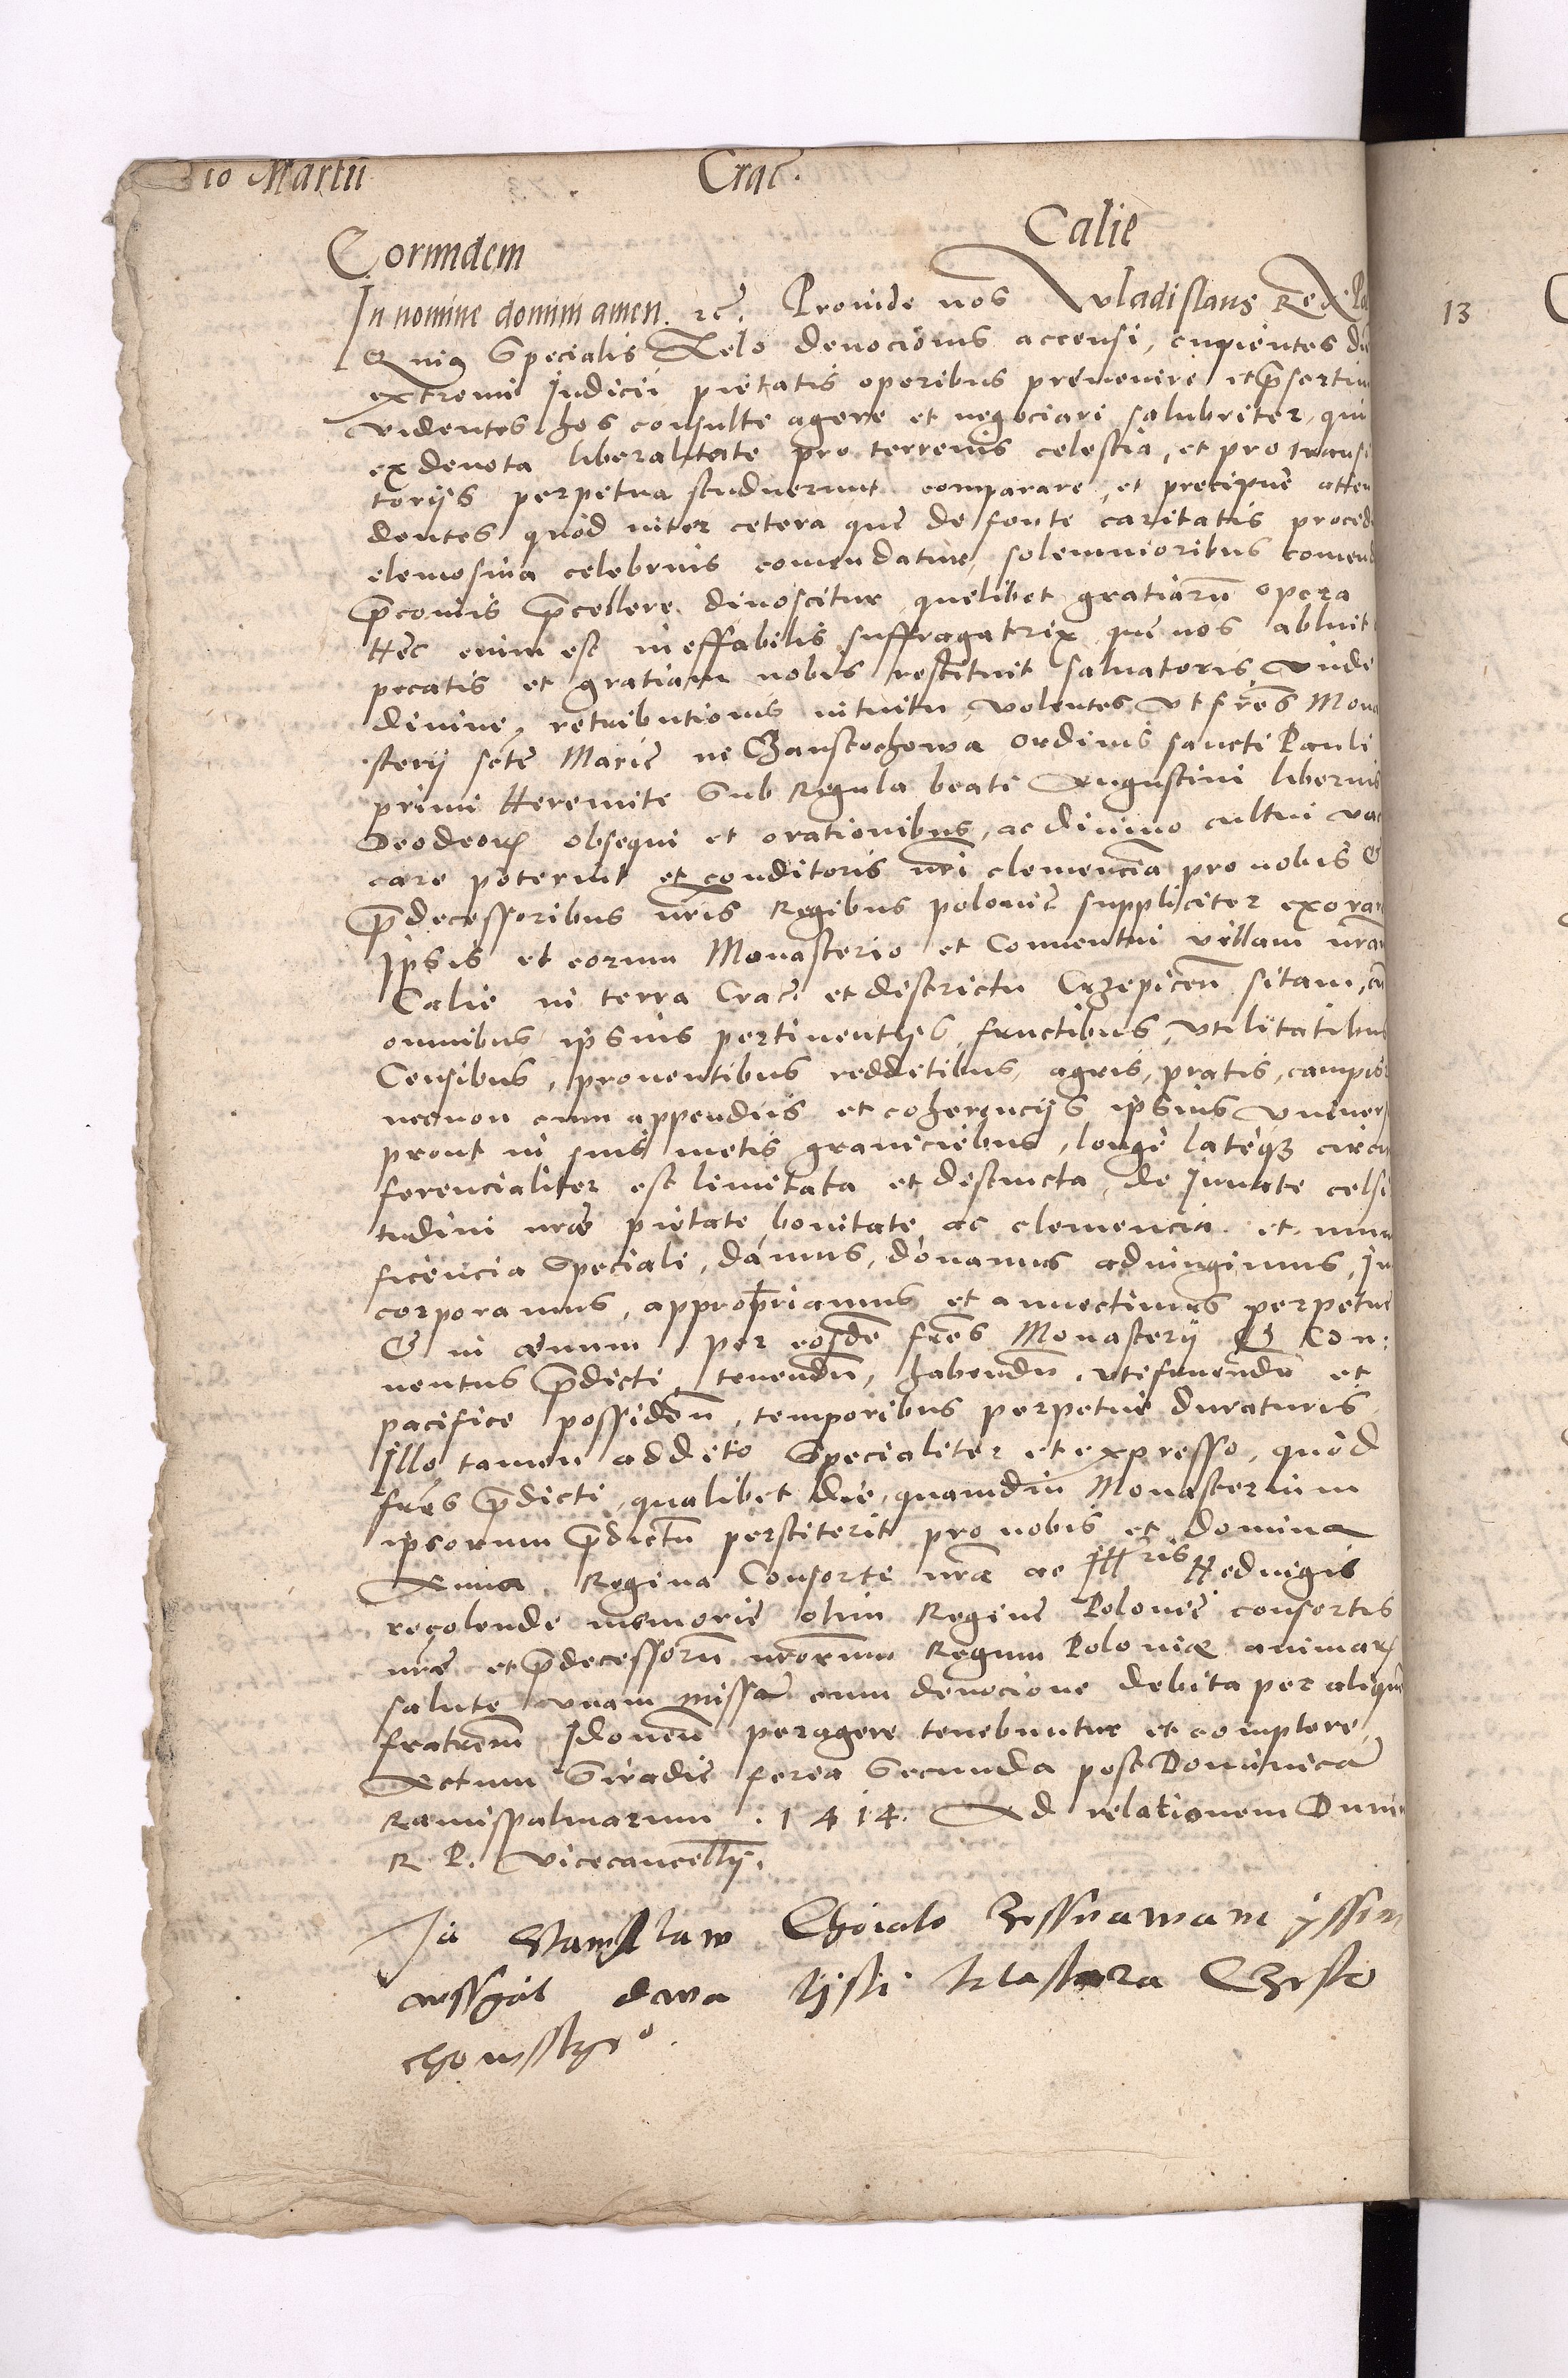 10 Martii Crac.
Calie
Eorundem
In nomine domini amen. &c. Proinde nos Vladislaus Rex Po
Quia Specialis Zelo deuocionis accensi, cupientes di
extremi Judicii pietatis operibus preuenire et p̄sertim
videntes hos consulte agere et negociari salubriter, qui
ex deuota liberalitate pro terrenis celestia, et pro transi
torijs perpetua studuerunt comparare, et precipue atten
dentes quod inter cetera que de fonte caritatis proced
elemosina celebrius comendatur, solemnioribus comend
p̄conijs p̄cellere dinoscitur quelibet gratiarū opera
Hec enim est ineffabilis suffragatrix que nos abluit
pecatis et gratiam nobis restituit saluatoris, vnde
diuine retributionis intuitu, volentes vt fr̄es Mona
sterij sctē Marie in Czanstochowa ordinis sancti Pauli
primi Heremite Sub Regula beati Augustini liberius
Deo deorꝫ obsequi et orationibus, ac diuino cultui va
care poterint et conditoris nr̄i clemenciā pro nobis &
p̄decessoribus nr̄is Regibus polonie suppliciter exorar
Ipsis et eorum Monasterio et Conuentui villam nr̄am
Calie in terra Crac. et districtu Crzepicen̄ sitam, cū
omnibus ipsius pertinentijs, fructibus, vtilitatibus
Censibus, prouentibus redditibus, agris, pratis, campis
necnon cum appendijs et coherencijs ipsius vniuers
prout in suis metis graniciebus, longe lateqꝫ circū
ferencialiter est limitata et distincta, de Innate celsi
tudini nr̄æ pietate, bonitate ac clemencia et muni
ficencia Speciali, damus, donamus adiungimus, In
corporamus, appropriamus et annectimus perpetue
& in æuum per eosdē fr̄es Monasterij & Con:
uentus p̄dicti, tenendū, habendū, vtifruendū et
pacifice possidēn, temporibus perpetue duraturis
Illo tamen addito Specialiter et expresso, quod
fr̄es p̄dicti, qualibet die, quamdiu Monasterium
ipsorum p̄dictū perstiterit pro nobis et domina
Anna Regina Consorte nr̄a ac Ill ris Heduigis
recolende memorie olim Regine Polonie consortis
nr̄e et p̄decessorū nr̄orum Regum Poloniæ animarꝫ
salute vnam missā cum deuocione debita per aliquē
fratrem̄ Idoneū peragere tenebuntur et complere
Actum Siradie feria Secunda post Dominicā
Ramispalmarum . 1414. Ad relationem Dnni
R. P. vicecancellij.
Ja Stanislaw
dwa lysti klastora Czesto
chowsskyego.
13